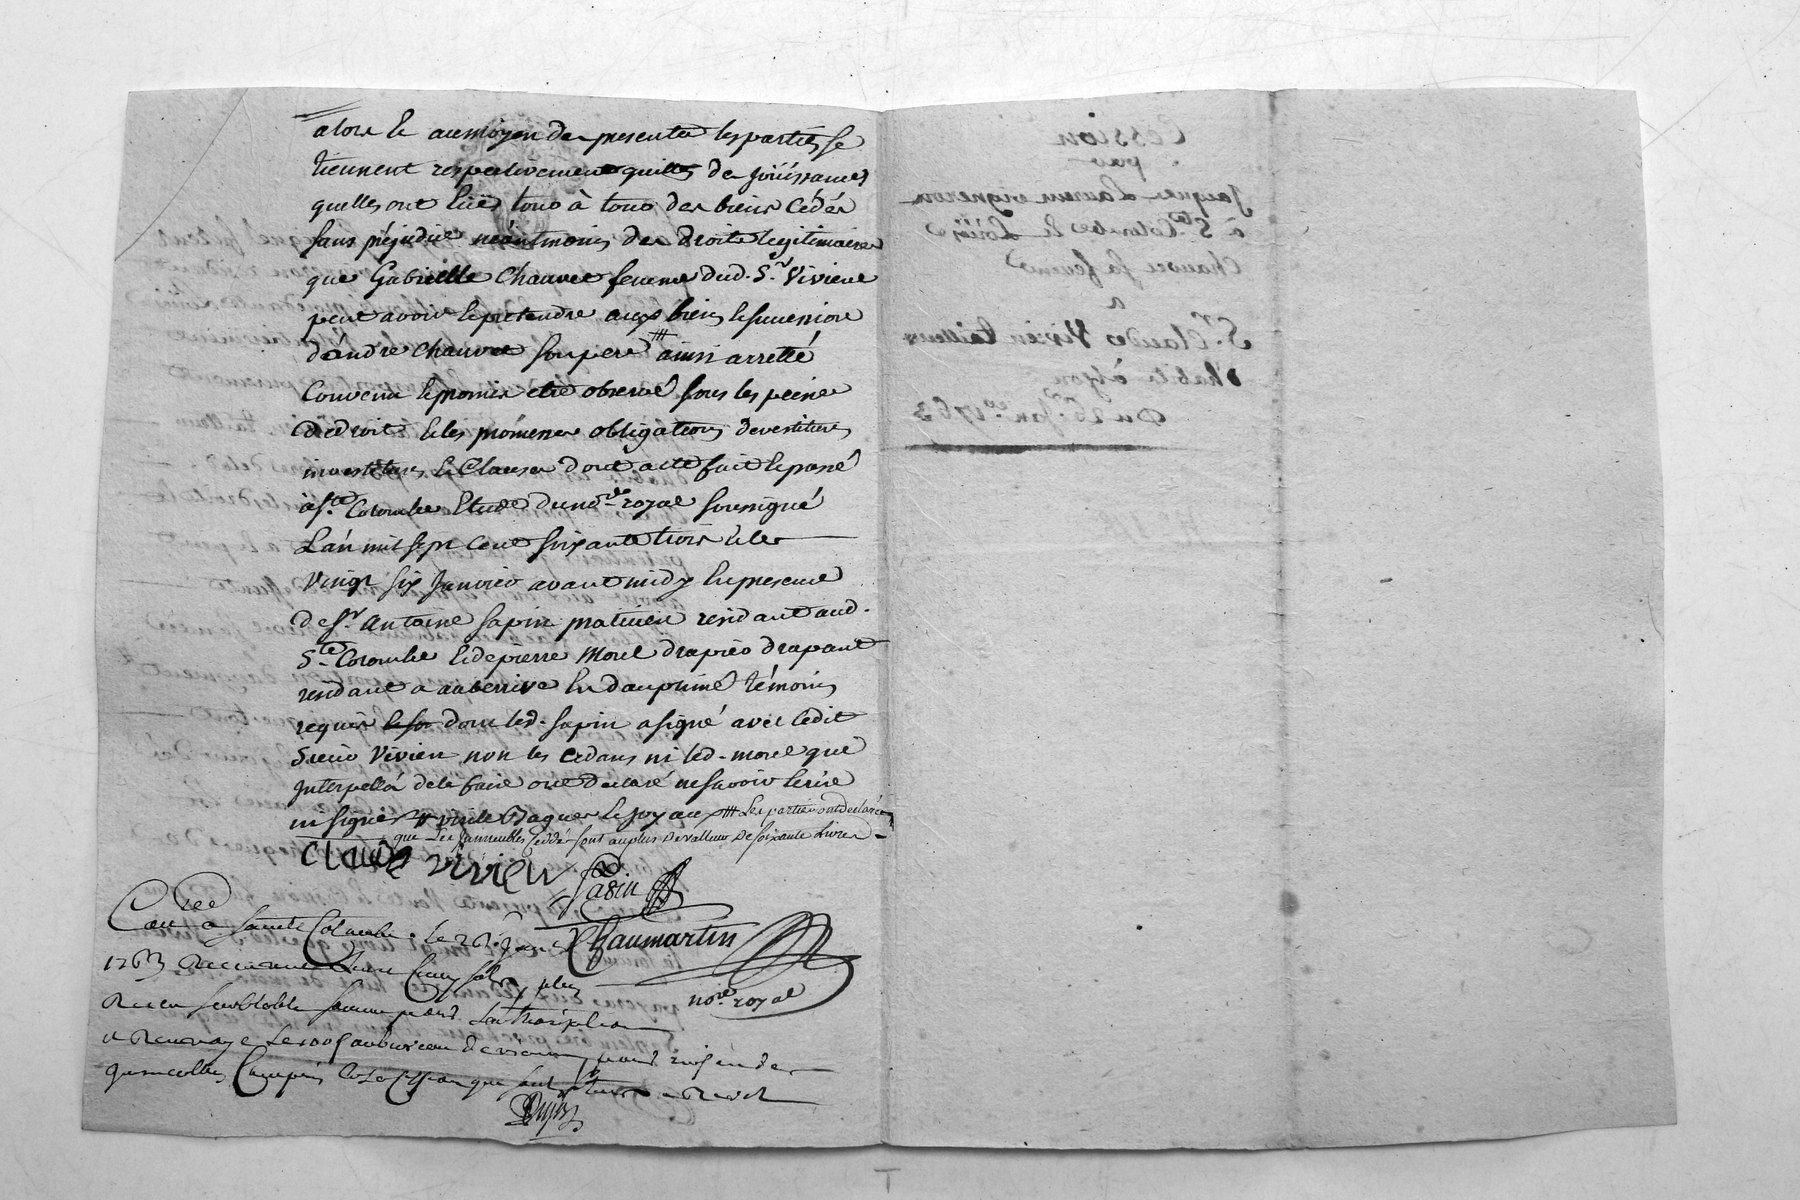 alors et aumoyen des presentes les parties se
tiennent respectivement quittes des joüissances
quelles ont eües tous à tous des biens cédés
sans préjudice néantmoins des droits legitimaires
que Gabrielle Chauvet femme dud. Sr. Vivien
peut avoir et pretendre aux biens et succession
dandré Chauvet son pere # ainsi arretté
convenu et promis etre observé sous les peines
de droit et les mémes obligations devestitures
investitures et Clauses dont acte fait et passé
à Ste. Colombe Etude du nore. royal soussigné
L'an mil sept cent soixante trois et le
vingt six Janvier avant midy En presence
de Sr. Antoine sapin praticien residant aud.
Ste. Colombe et de pierre Morel drapier drapant
residant a auberrive En dauphiné témoins
requis dont led. sapin a signé avec ledit
Sieur Vivien non les cedans ni led. morel que
Interpellés de le faire ont declaré ne savoir écrire
ni signer # Les parties ont declaré
que les Immeubles cedés sont au plus de valleur de soixante Livres
Claude vivien
Sapin
Chaumartin
nore. royal
a sainte Colombe. Le 26. janv.
1763
Cession
par
Jacques Laurent vigneron
à Ste. Colombe et Loüise
Chauvet sa femme
a
Sr. Claude Vivien tailleur
d'habits à Lyon
Du 26e. Janer. 1763